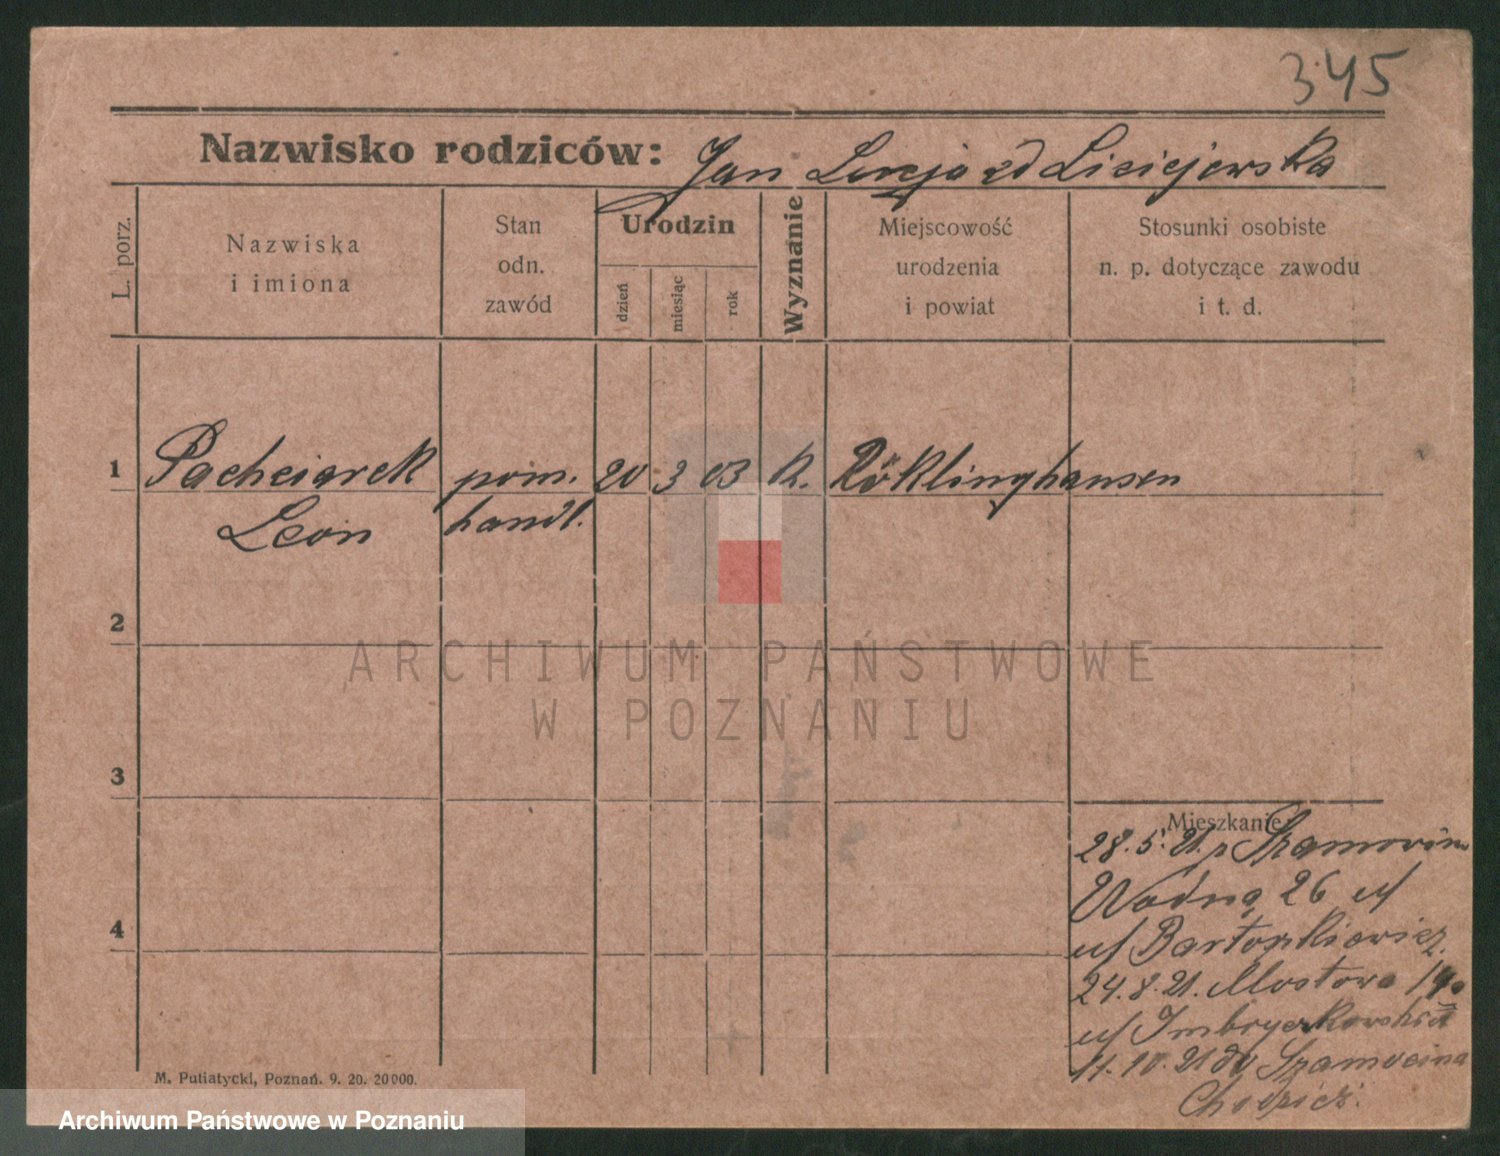 345
Nazwisko rodziców: Jan Łucja zd Lisiejewska
L. porz.
Nazwiska
i imiona
Stan
odn.
zawód
Urodzin
dzień
miesiąc
rok
Wyznanie
Miejscowość
urodzenia
i powiat
Stosunki osobiste
n. p. dotyczące zawodu
i t. d.
1 Pachciarek pom. 20 3 03 K. Röklinghausen
Leon handl.
2
3
4
Mieszkanie:
28.5.21. z Szamocin
Wodną 26
Bartoszkiewicz
24.8.21. Mostowa
Imbryczkowski
11.10.21 do Szamocina
Chodzież.
M. Putiatycki, Poznań. 9. 20. 20000.
ARCHIWUM PAŃSTWOWE
W POZNANIU
Archiwum Państwowe w Poznaniu